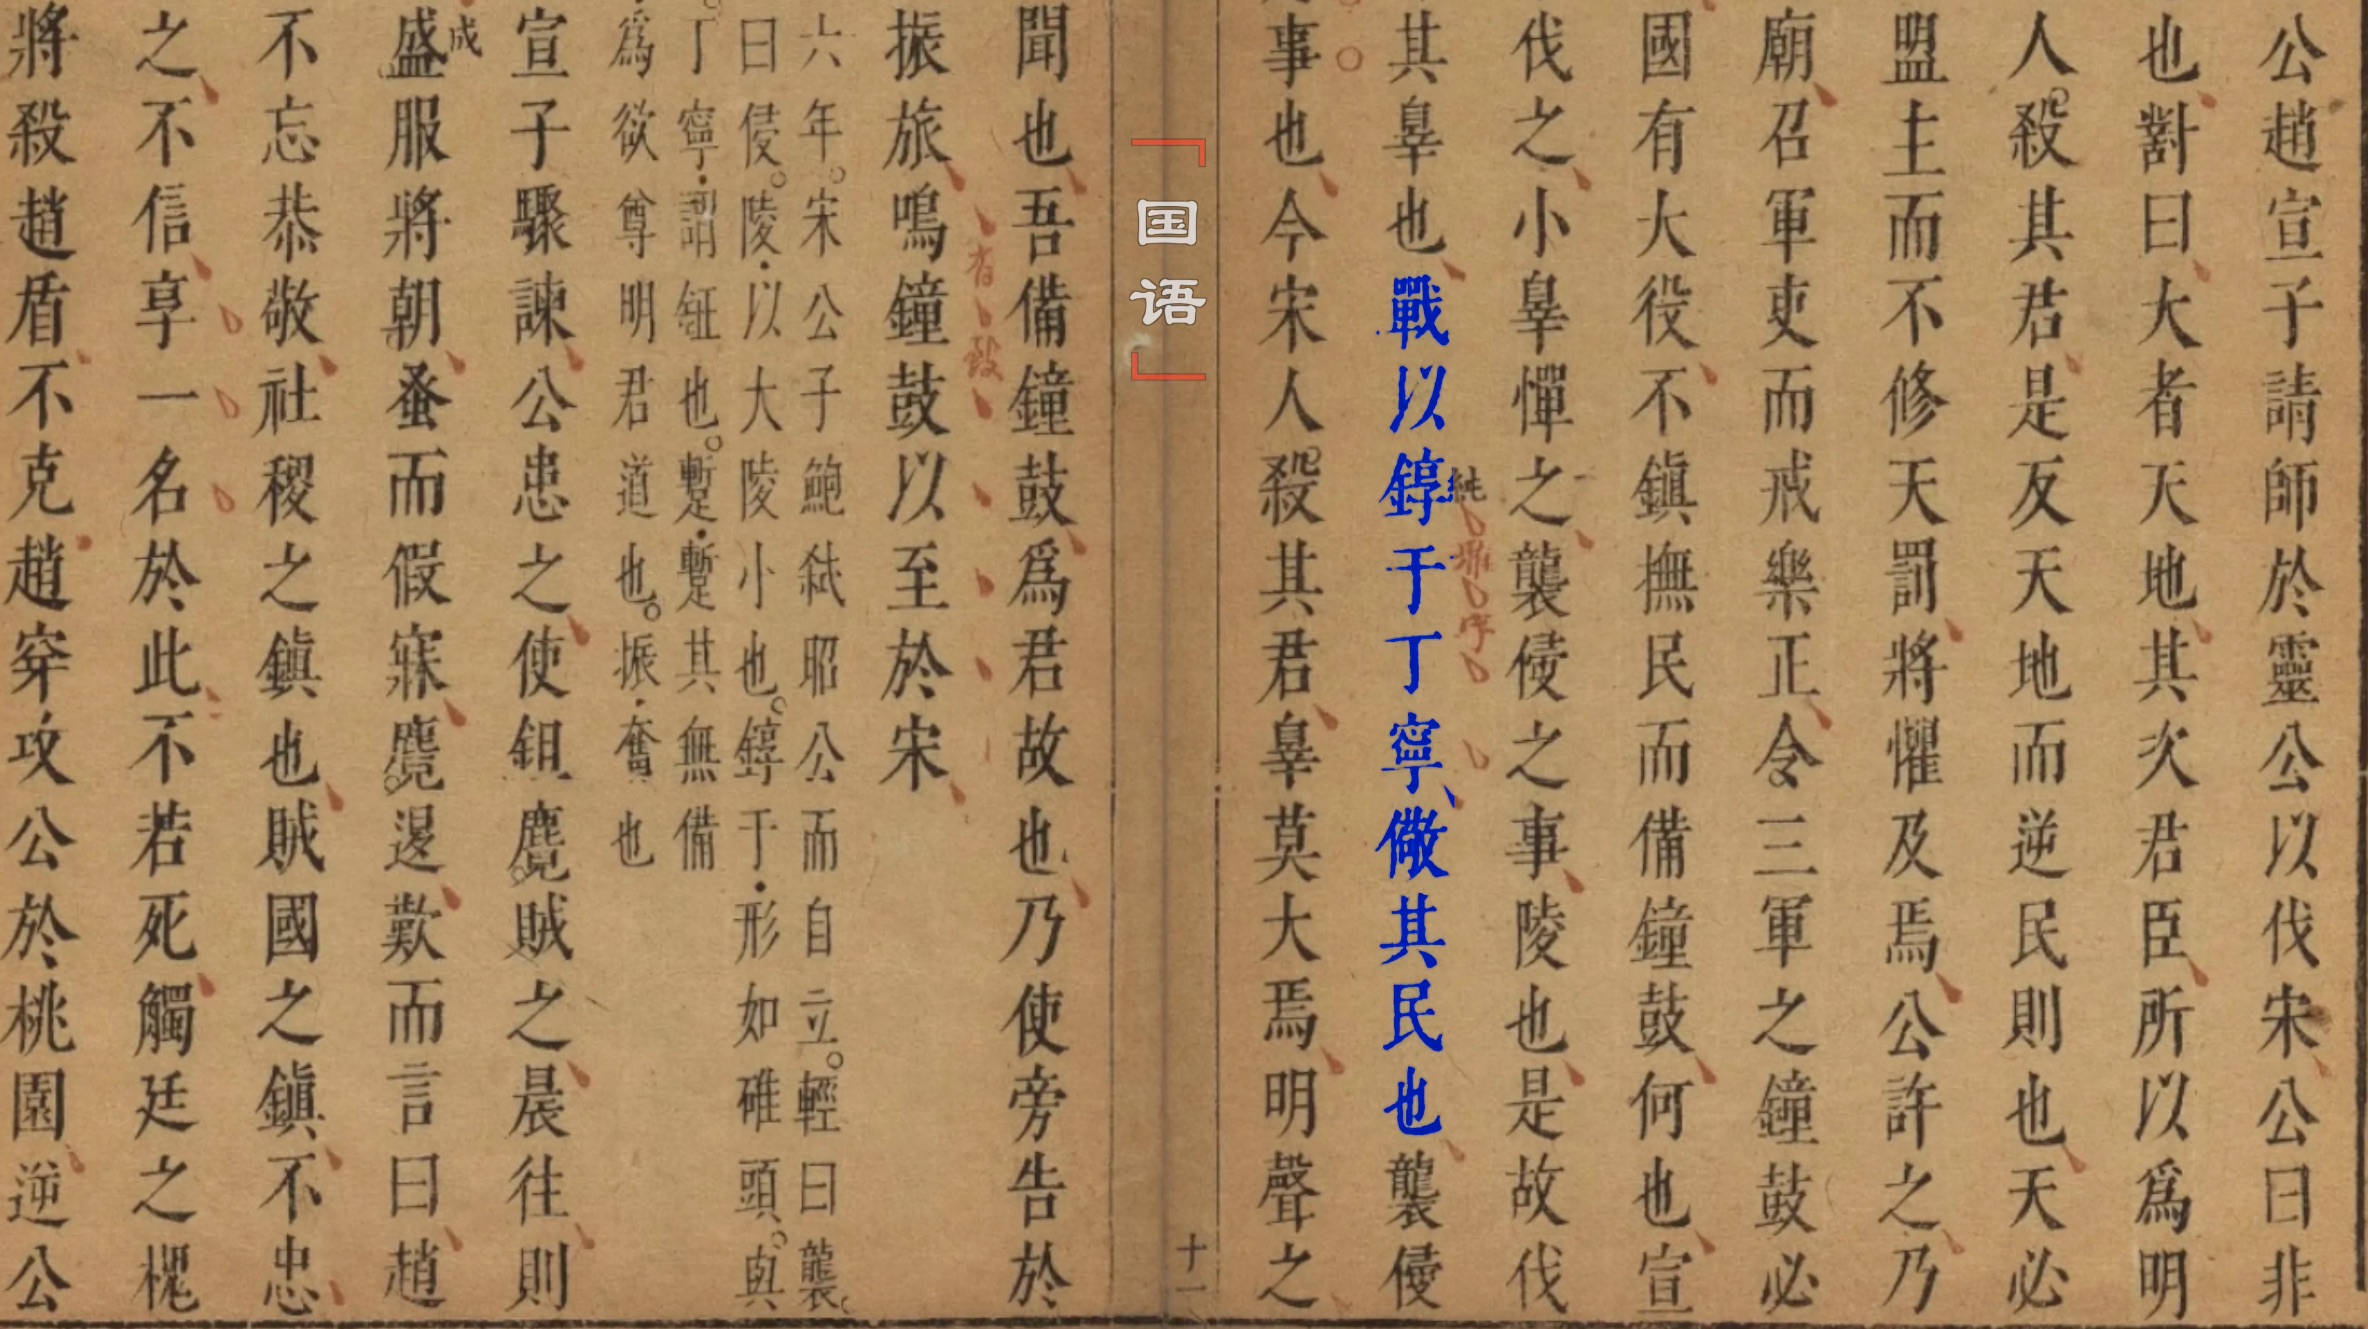 公趙宣子請師於靈公以伐宋公曰非
也對曰大者天地其次君臣所以爲明
人殺其君是反天地而逆民則也天必
盟主而不修天罰將懼及焉公許之乃
廟召軍吏而戒樂正令三軍之鐘鼓必
國有大役不鎮撫民而備鐘鼓何也宣
伐之小辠憚之襲侵之事陵也是故伐
純
其辠也戰以錞于丁寧儆其民也襲侵
事也今宋人殺其君辠莫大焉明聲之
国语
十一
聞也吾備鐘鼓爲君故也乃使旁告於
振旅鳴鐘鼓以至於宋
六年。宋公子鮑弒昭公而自立。輕曰襲。
曰侵。陵·以大陵小也。錞于·形如碓頭。與
丁寧·謂鉦也。蹔·蹔其無備
爲欲尊明君道也。振·奮也
宣子驟諫公患之使鉏麑賊之晨往則
成
盛服將朝蚤而假寐麑退歎而言曰趙
不忘恭敬社稷之鎮也賊國之鎮不忠
之不信享一名於此不若死觸廷之槐
將殺趙盾不克趙穿攻公於桃園逆公